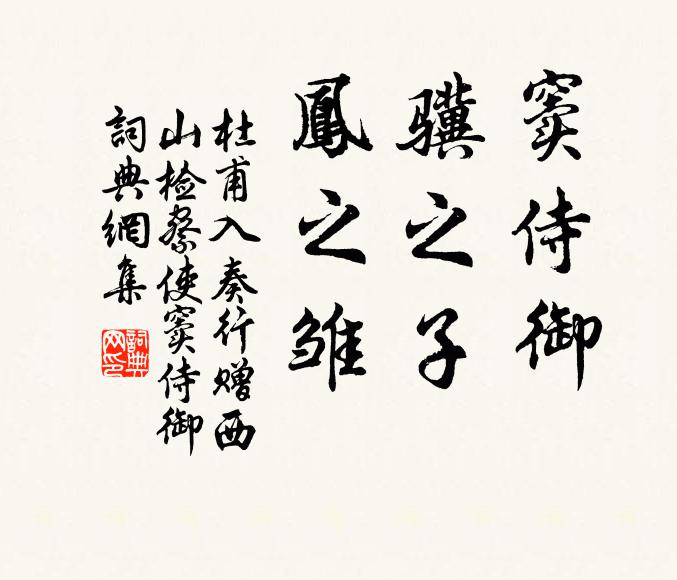 窦侍御
骥之子
鳳之雏
杜甫入奏行赠西
山检察使窦侍御
詞典網集
詞典
网印